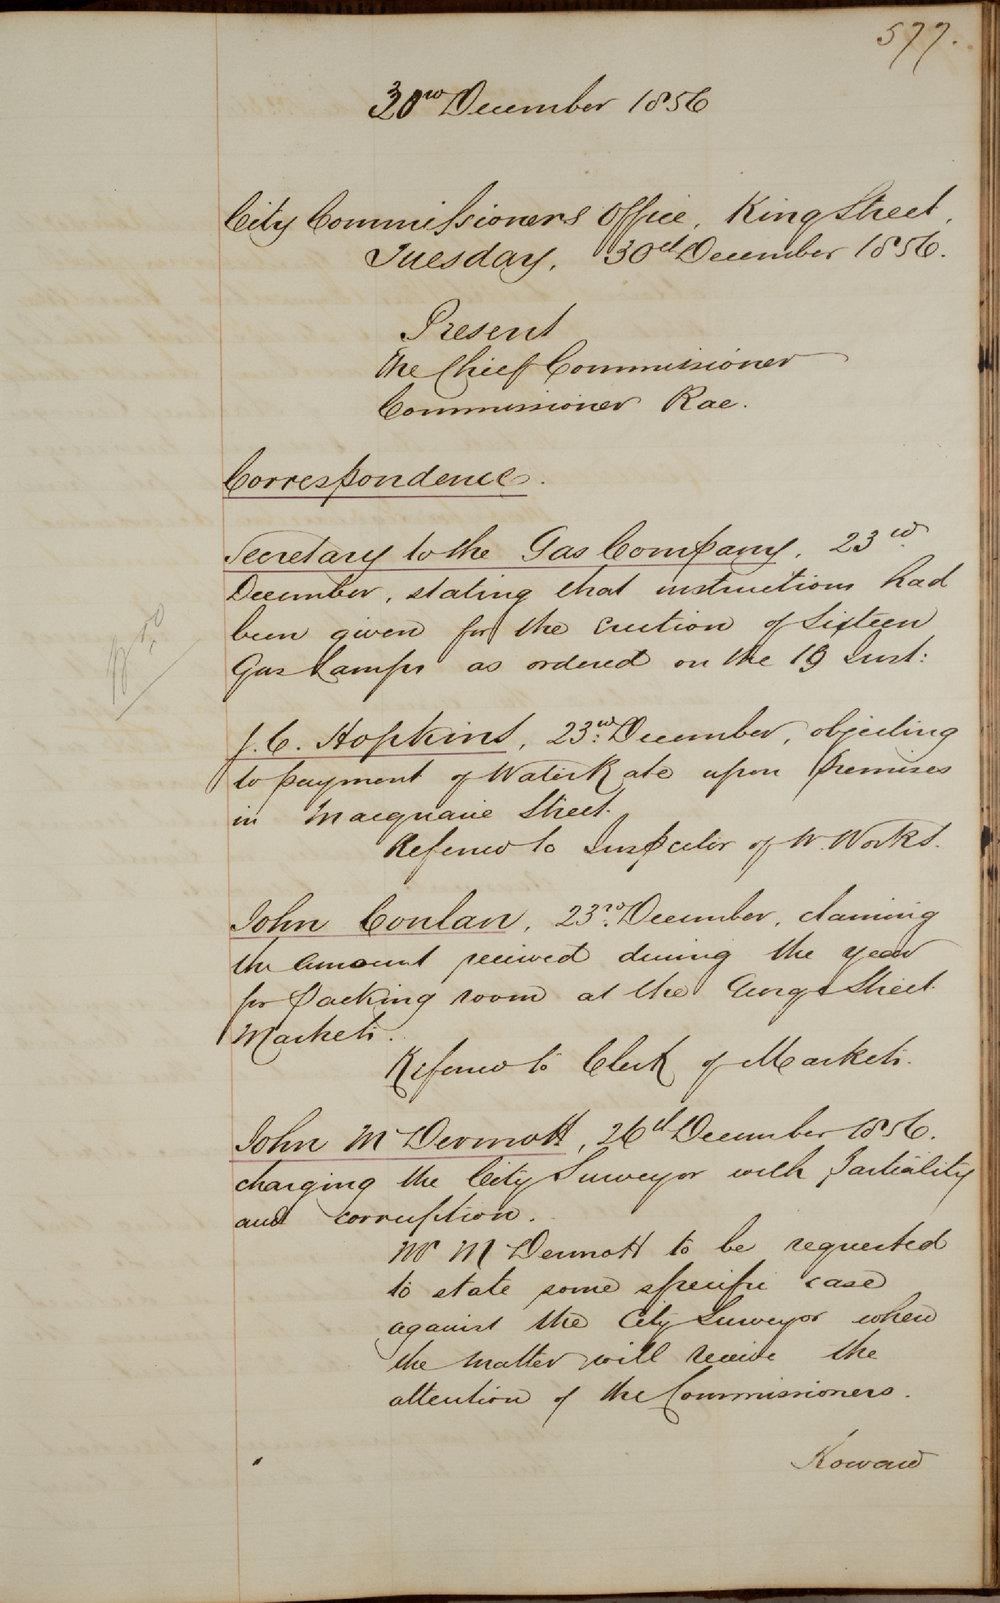 577.
30th December 1856
City Commissioners Office, King Street,
Tuesday, 30th December 1856.
Present
The Chief Commissioner
Commissioner Rae.
Correspondence.
Secretary to the Gas Company, 23rd
December, stating that instructions had
been given for the erection of Sixteen
Gas Lamps as ordered on the 19 Inst:
J. C. Hopkins, 23rd December, objecting
to payment of Water Rate upon Premises
in Macquarie Street.
Referred to Inspector of W. Works.
John Conlan, 23rd December, claiming
the amount received during the year
for packing room at the George Street
Markets.
Referred to Clerk of Markets.
John McDermott, 26th December 1856.
charging the City Surveyor with Partiality
and corruption.
Mr McDermott to be requested
to state some specific case
against the City Surveyor when
the matter will receive the
attention of the Commissioners.